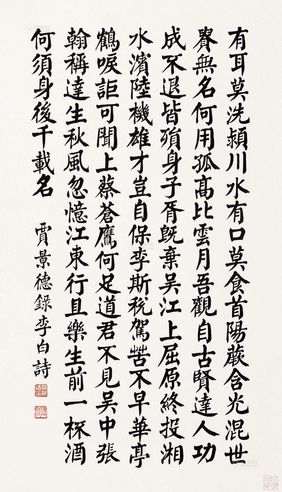 有耳莫洗潁川水有口莫食首陽蕨含光混世
貴無名何用孤高比雲月吾觀自古賢達人功
成不退皆殞身子胥既棄吳江上屈原終投湘
水濱陸機雄才豈自保李斯稅駕苦不早華亭
鶴唳詎可聞上蔡蒼鷹何足道君不見吳中張
翰稱達生秋風忽憶江東行且樂生前一杯酒
何須身後千載名
賈景德錄李白詩